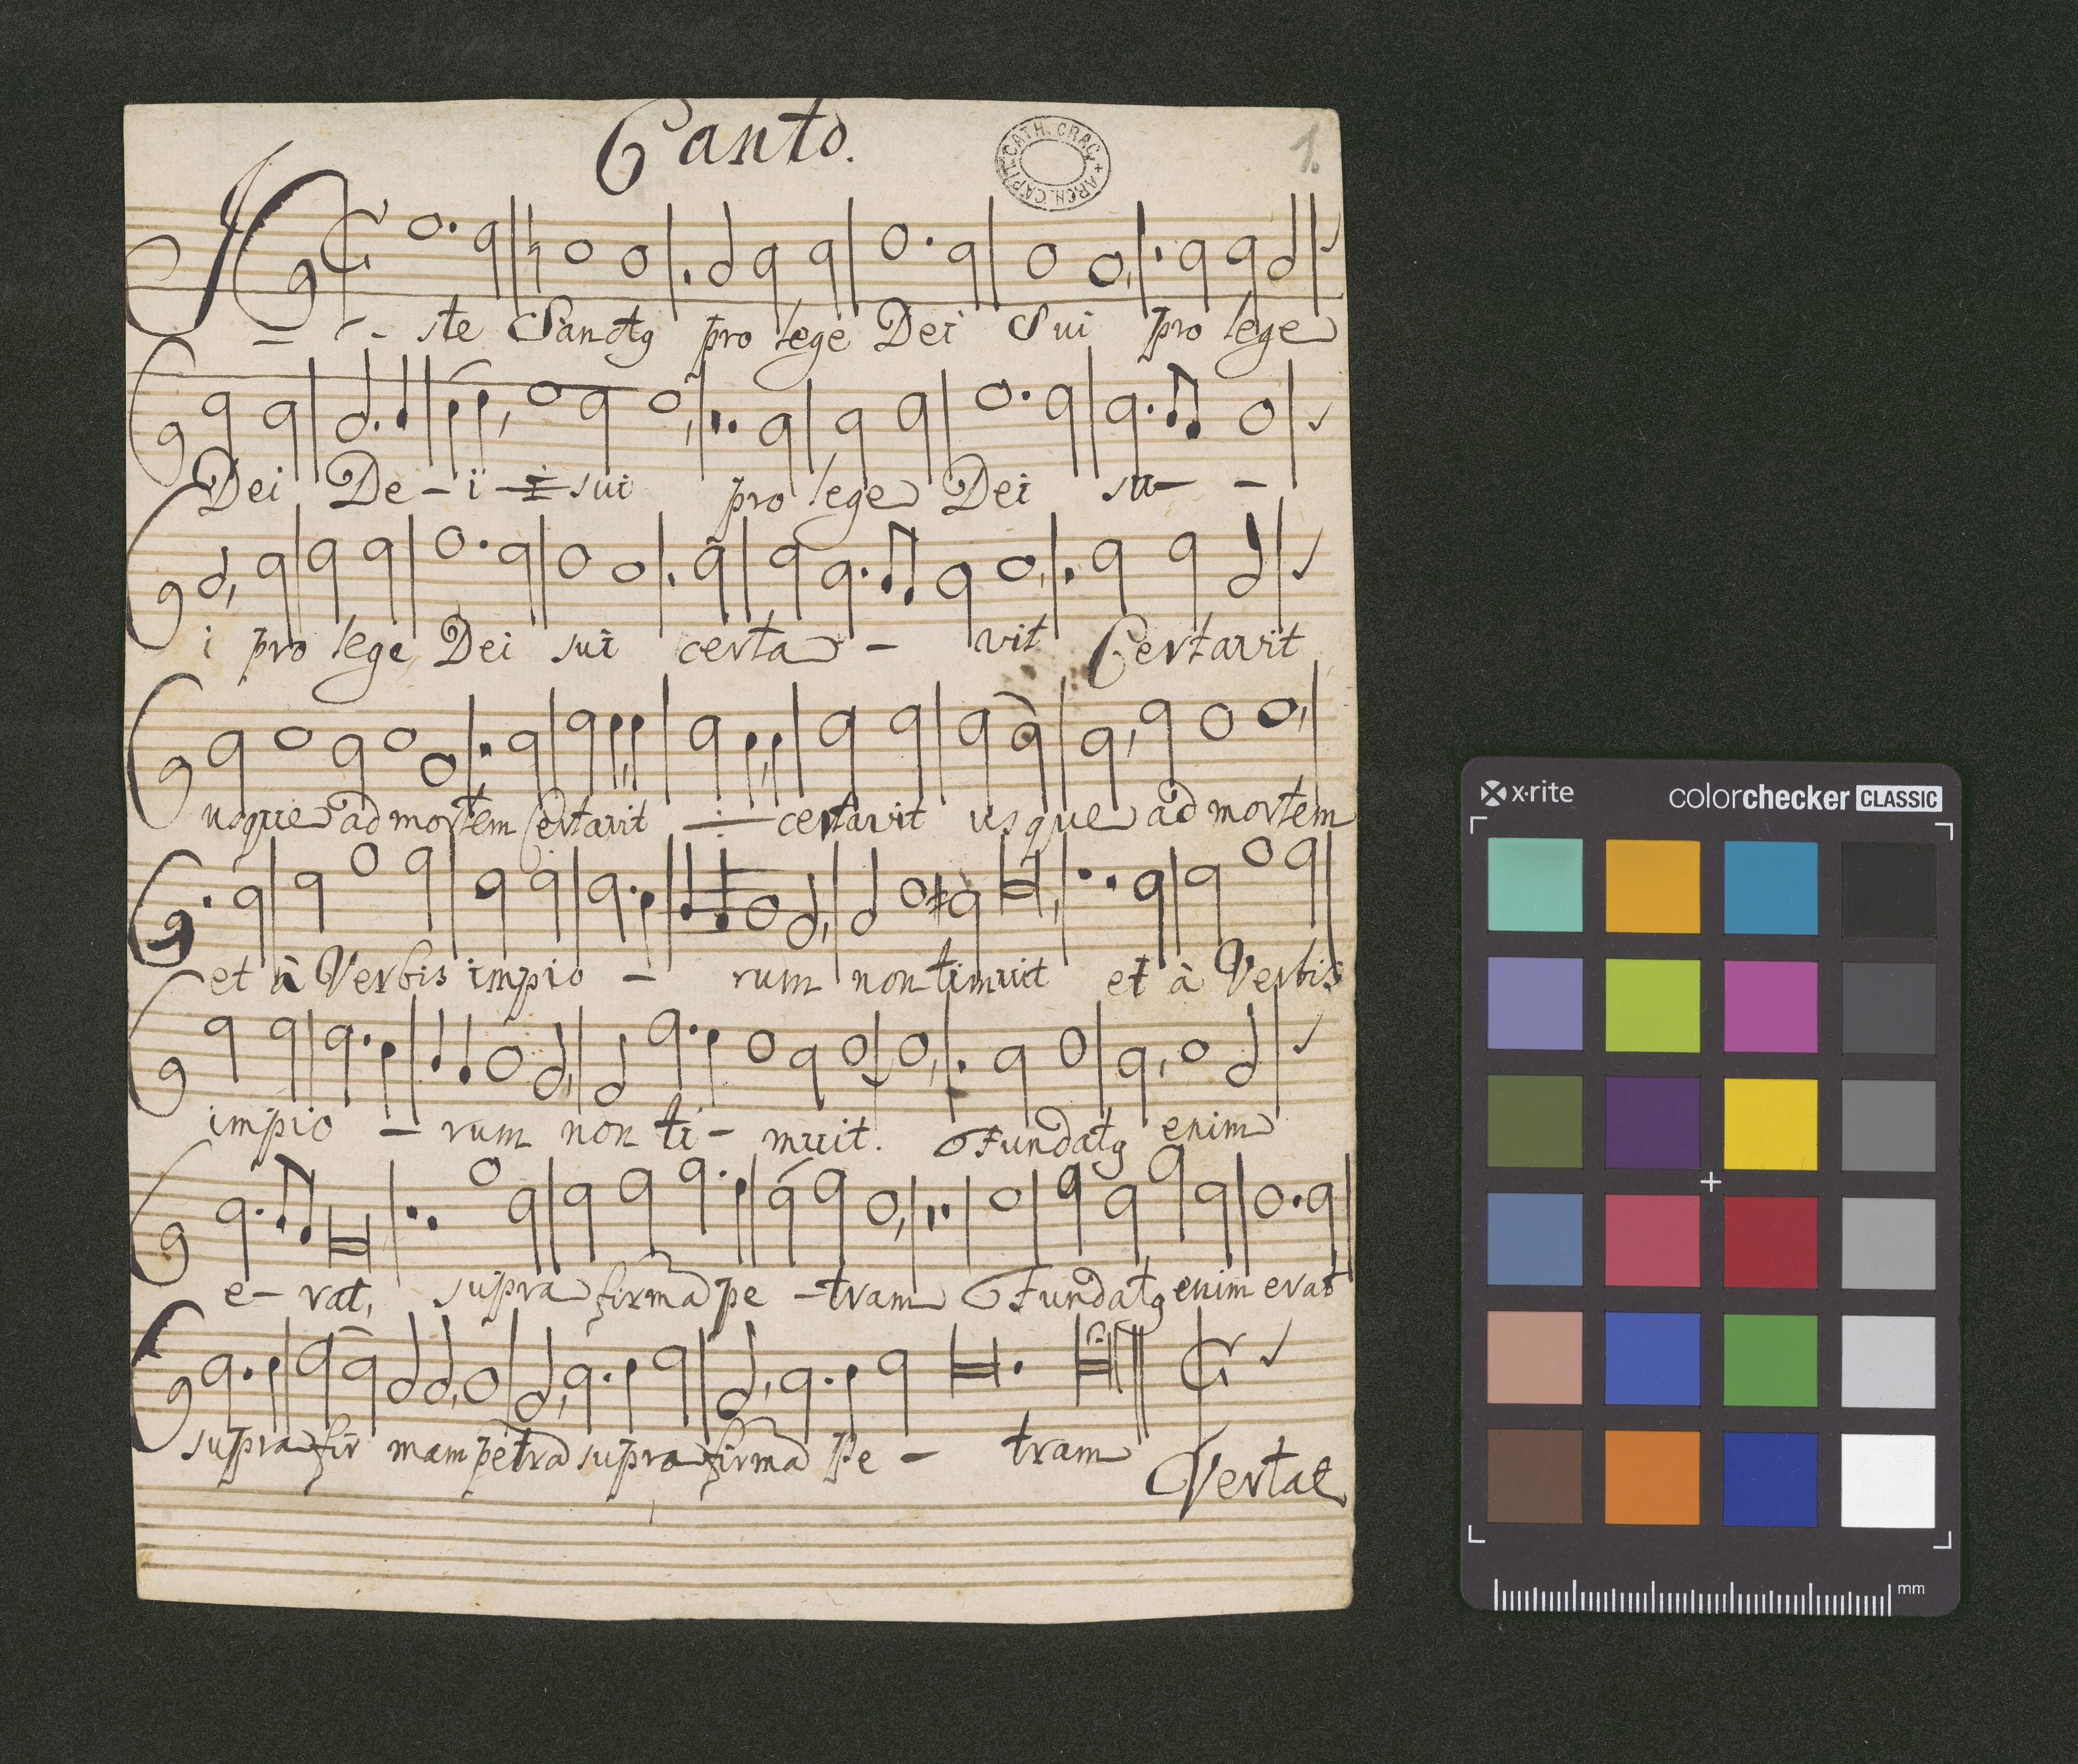 Canto.
ARCH. CAPIT. CATH. CRAC.
1.
I - - ste Sanctꝯ pro lege Dei Sui pro lege
Dei De - i - sui pro lege Dei su - -
i pro lege Dei sui certa - vit Certavit
usque ad mortem Certavit certavit usque ad mortem
et à Verbis impio - rum non timuit et à Verbis
impio - rum non ti - muit. Fundatꝯ enim
e - rat, supra firmā pe - tram Fundatꝯ enim erat
supra fir mam petrā supra firmā Pe - tram
Vertat
x-rite
colorchecker CLASSIC
mm